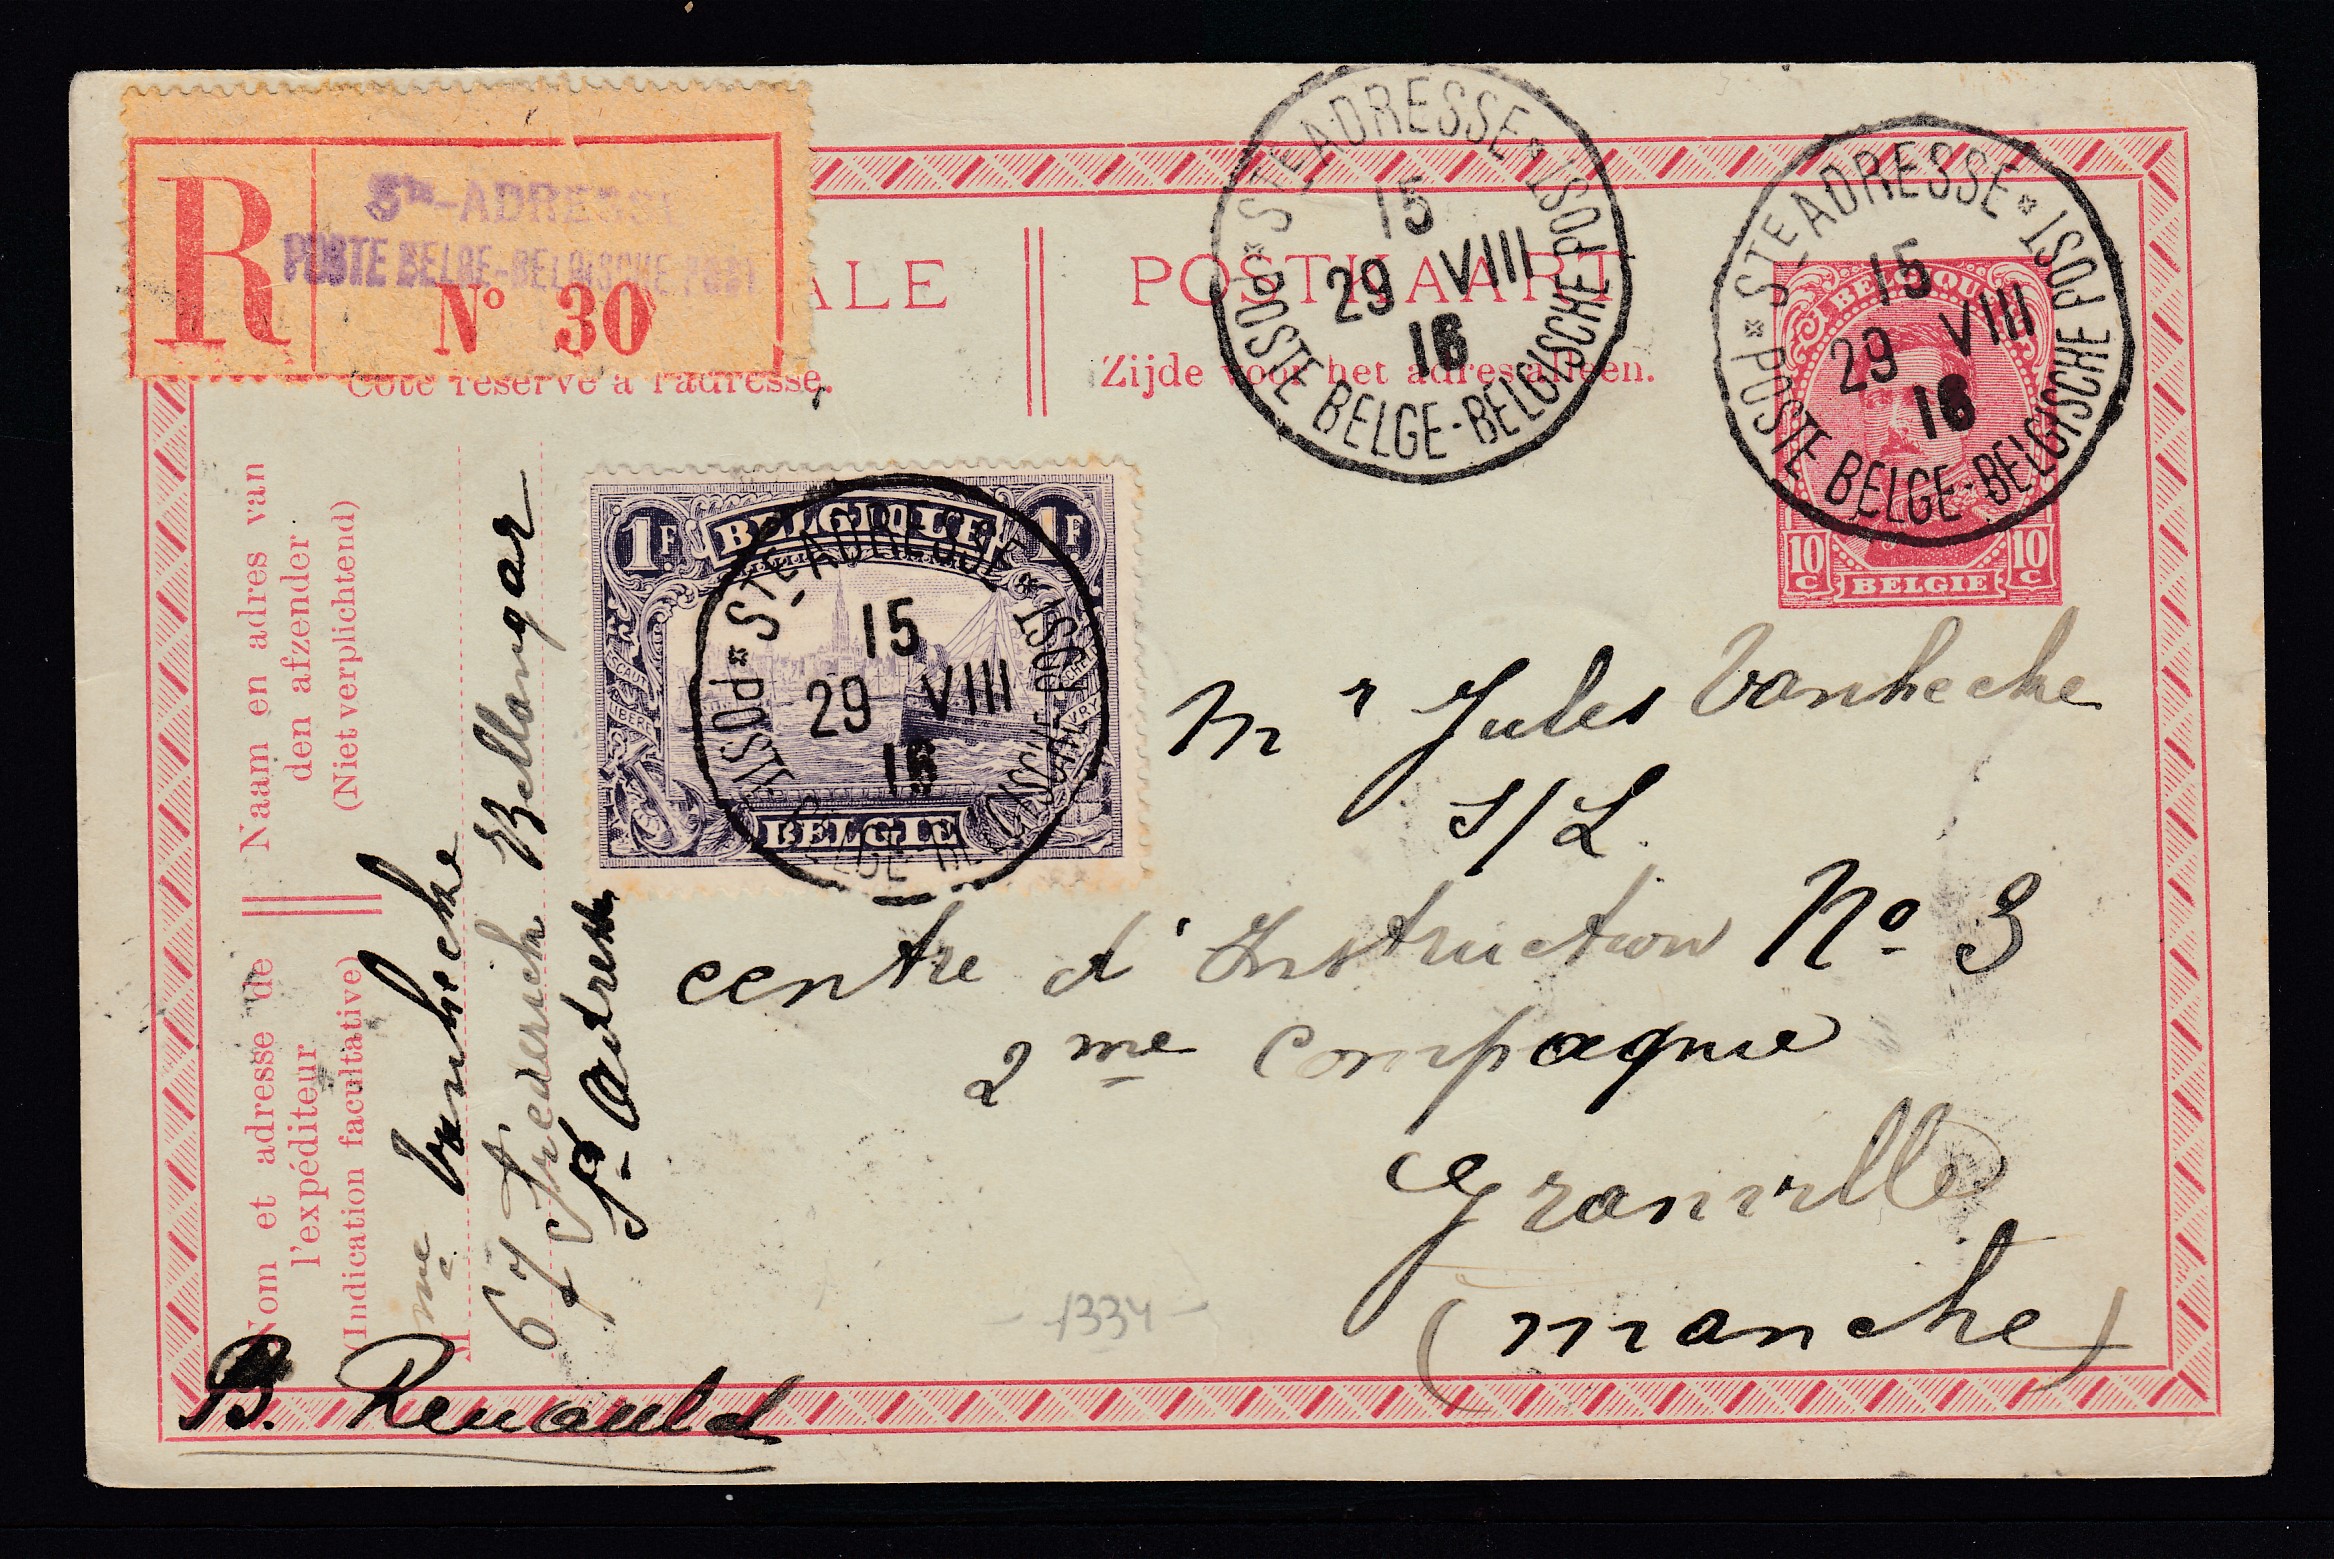 R
Ste-ADRESSE
POSTE BELGE-BELGISCHE POST
No 30
ALE
POSTKAART
Côté réservé à l'adresse.
Zijde voor het adres alleen.
STE ADRESSE * POSTE BELGE-BELGISCHE POST *
15
29 VIII
16
STE ADRESSE * POSTE BELGE-BELGISCHE POST *
15
29 VIII
16
BELGIQUE
10 C
BELGIE
10 C
1F
BELGIQUE
1F
ESCAUT LIBERE
SCHELDE VRY
BELGIE
STE ADRESSE * POSTE BELGE-BELGISCHE POST *
15
29 VIII
16
Naam en adres van
den afzender
(Niet verplichtend)
Nom et adresse de
l'expéditeur
(Indication facultative)
Mme Vanhecke
67 Frederick Bellangar
St Adresse
Mr Jules Vanhecke
S/L.
centre d'Instruction No 3
2me Compagnie
Granville
(manche)
- 1334 -
B. Renauld